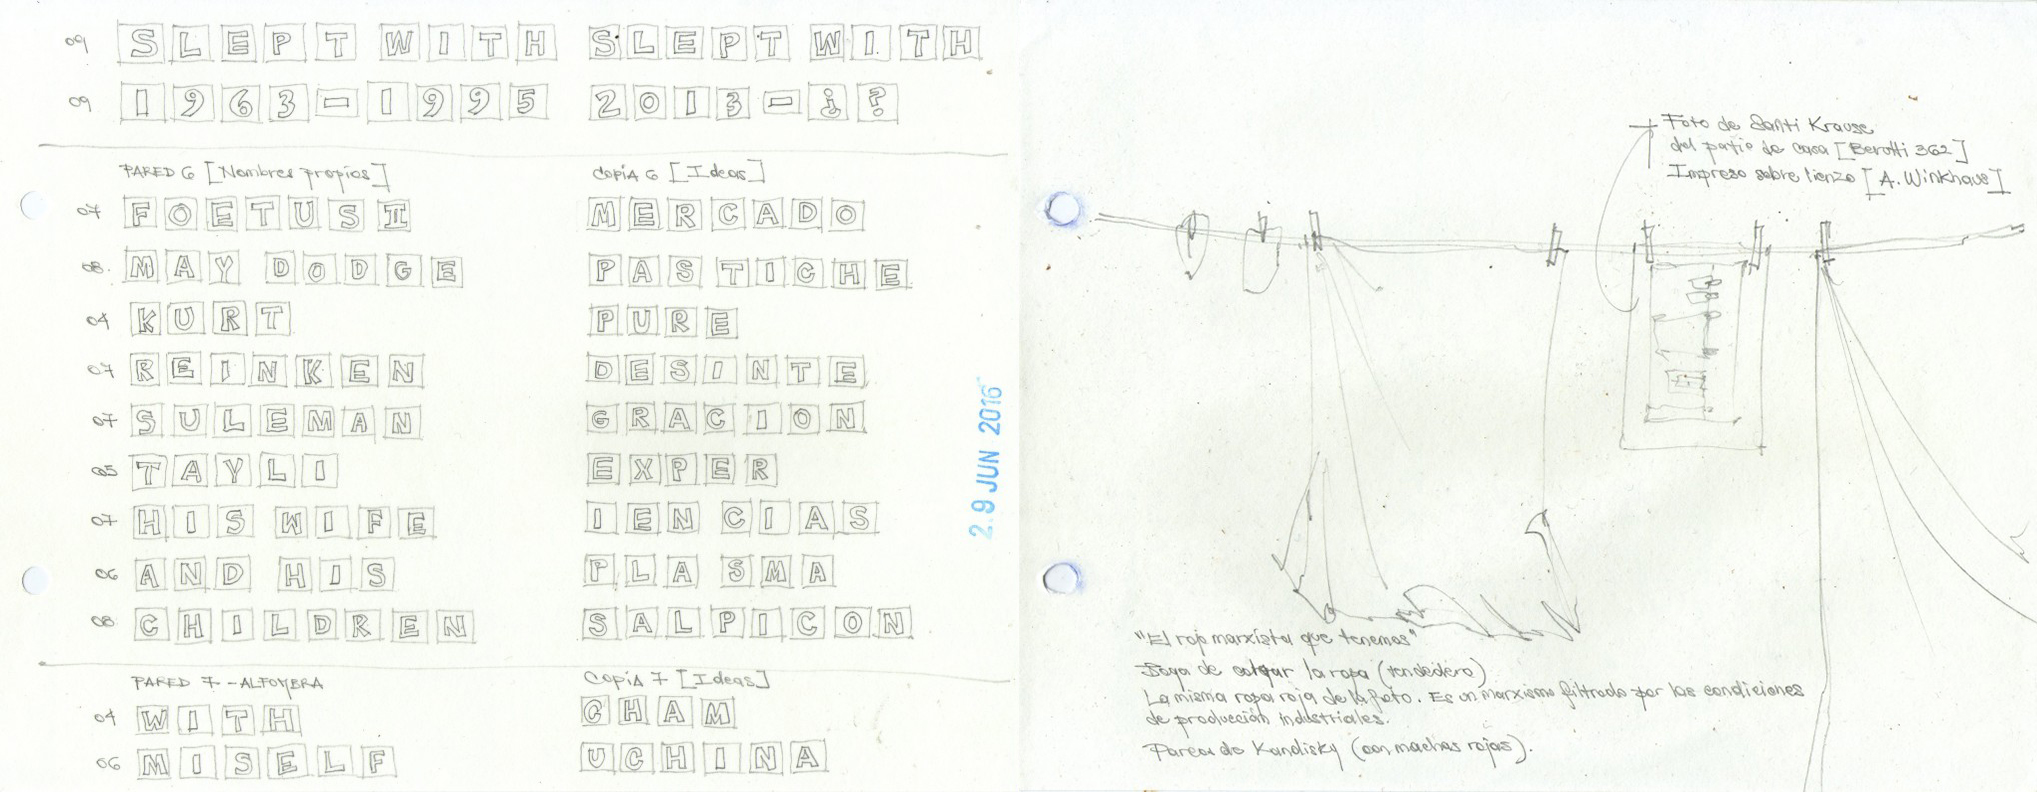 09 SLEPT WITH SLEPT WITH
09 1963-1995 2013-¿?
PARED 6 [Nombres propios] COPIA 6 [Ideas]
07 FOETUS I MERCADO
08. MAY DODGE PASTICHE
04 KURT PURE
07 REINKEN DESINTE
07 SULEMAN GRACION
05 TAYLI EXPER
07 HIS WIFE IENCIAS
06 AND HIS PLASMA
08 CHILDREN SALPICON
PARED 7 - ALFOMBRA COPIA 7 [Ideas]
04 WITH CHAM
06 MISELF UCHINA
29 JUN 2016
Foto de Santi Krause
del patio de casa [Berutti 362]
Impreso sobre lienzo [A. Winkhaus]
"El rojo marxista que tenemos"
Soga de colgar la ropa (tendedero)
La misma ropa roja de la foto. Es un marxismo filtrado por las condiciones
de producción industriales.
Kandisky (con machas rojas).